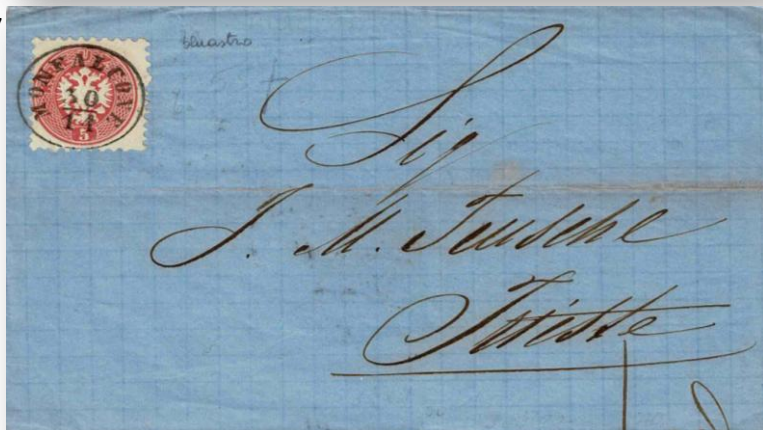 MONFALCONE
30
11
5
bluastro
Sig
J. M. Teusche
Trieste